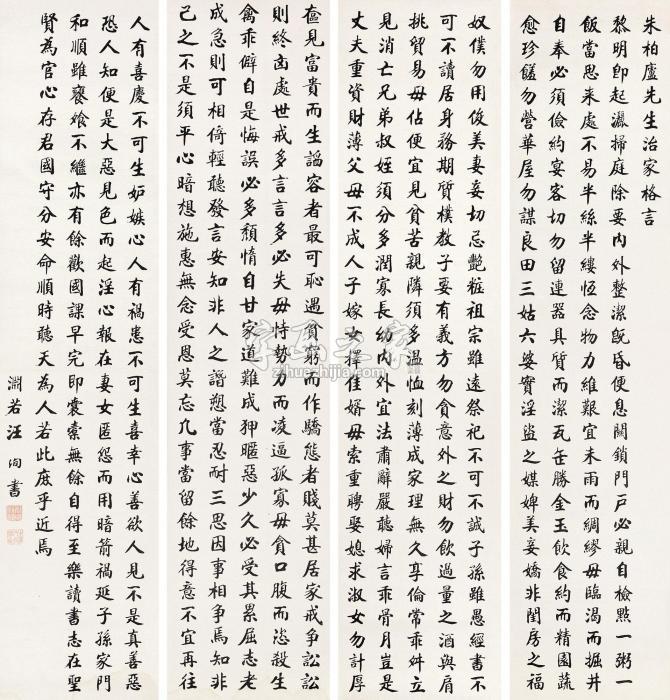 朱柏廬先生治家格言
黎明即起灑掃庭除要內外整潔既昏便息關鎖門戶必親自檢點一粥一
飯當思来處不易半絲半縷恆念物力維艱宜未雨而綢繆毋臨渴而掘井
自奉必須儉約宴客切勿留連器具質而潔瓦缶勝金玉飲食約而精園蔬
愈珍饈勿營華屋勿謀良田三姑六婆實淫盜之媒婢美妾嬌非閨房之福
奴僕勿用俊美妻妾切忌艷粧祖宗雖遠祭祀不可不誠子孫雖愚經書不
可不讀居身務期質樸教子要有義方勿貪意外之財勿飲過量之酒與肩
挑貿易毋佔便宜見貧苦親隣須多溫恤刻薄成家理無久享倫常乖舛立
見消亡兄弟叔姪須分多潤寡長幼內外宜法肅辭嚴聽婦言乖骨月豈是
丈夫重資財薄父母不成人子嫁女擇佳婿毋索重聘娶媳求淑女勿計厚
奩見富貴而生諂容者最可恥遇貧窮而作驕態者賤莫甚居家戒爭訟訟
則終凶處世戒多言言多必失毋恃勢力而凌逼孤寡毋貪口腹而恣殺生
禽乖僻自是悔誤必多頹惰自甘家道難成狎暱惡少久必受其累屈志老
成急則可相倚輕聽發言安知非人之譖愬當忍耐三思因事相爭焉知非
己之不是須平心暗想施惠無念受恩莫忘凡事當留餘地得意不宜再往
人有喜慶不可生妒嫉心人有禍患不可生喜幸心善欲人見不是真善惡
恐人知便是大惡見色而起淫心報在妻女匿怨而用暗箭禍延子孫家門
和順雖饔飧不繼亦有餘歡國課早完即囊橐無餘自得至樂讀書志在聖
賢為官心存君國守分安命順時聽天為人若此庶乎近焉
淵若汪洵書
字画之家
zihuazhijia.com